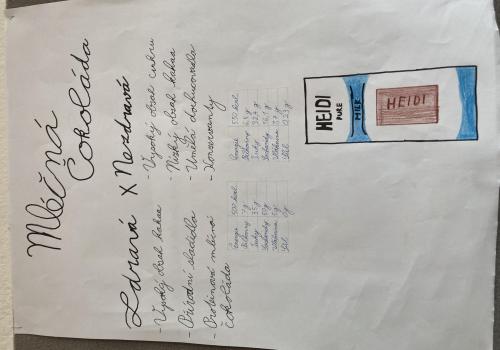 Mléčná
Čokoláda
Zdravá X Nezdravá
- Vysoký obsah kakaa
- Přírodní sladidla
- Proteinová mléčná
čokoláda
- Vysoký obsah cukru
- Nízký obsah kakaa
- Umělá dochucovadla
- Konzervanty
Energie 500 kcal
Bílkoviny 7g
Tuky 35g
Sacharidy 50g
Vláknina 5g
Sůl 0g
Energie 550 kcal
Bílkoviny
Tuky
Sacharidy
Vláknina
Sůl
HEIDI
PURE
MILK
HEIDI